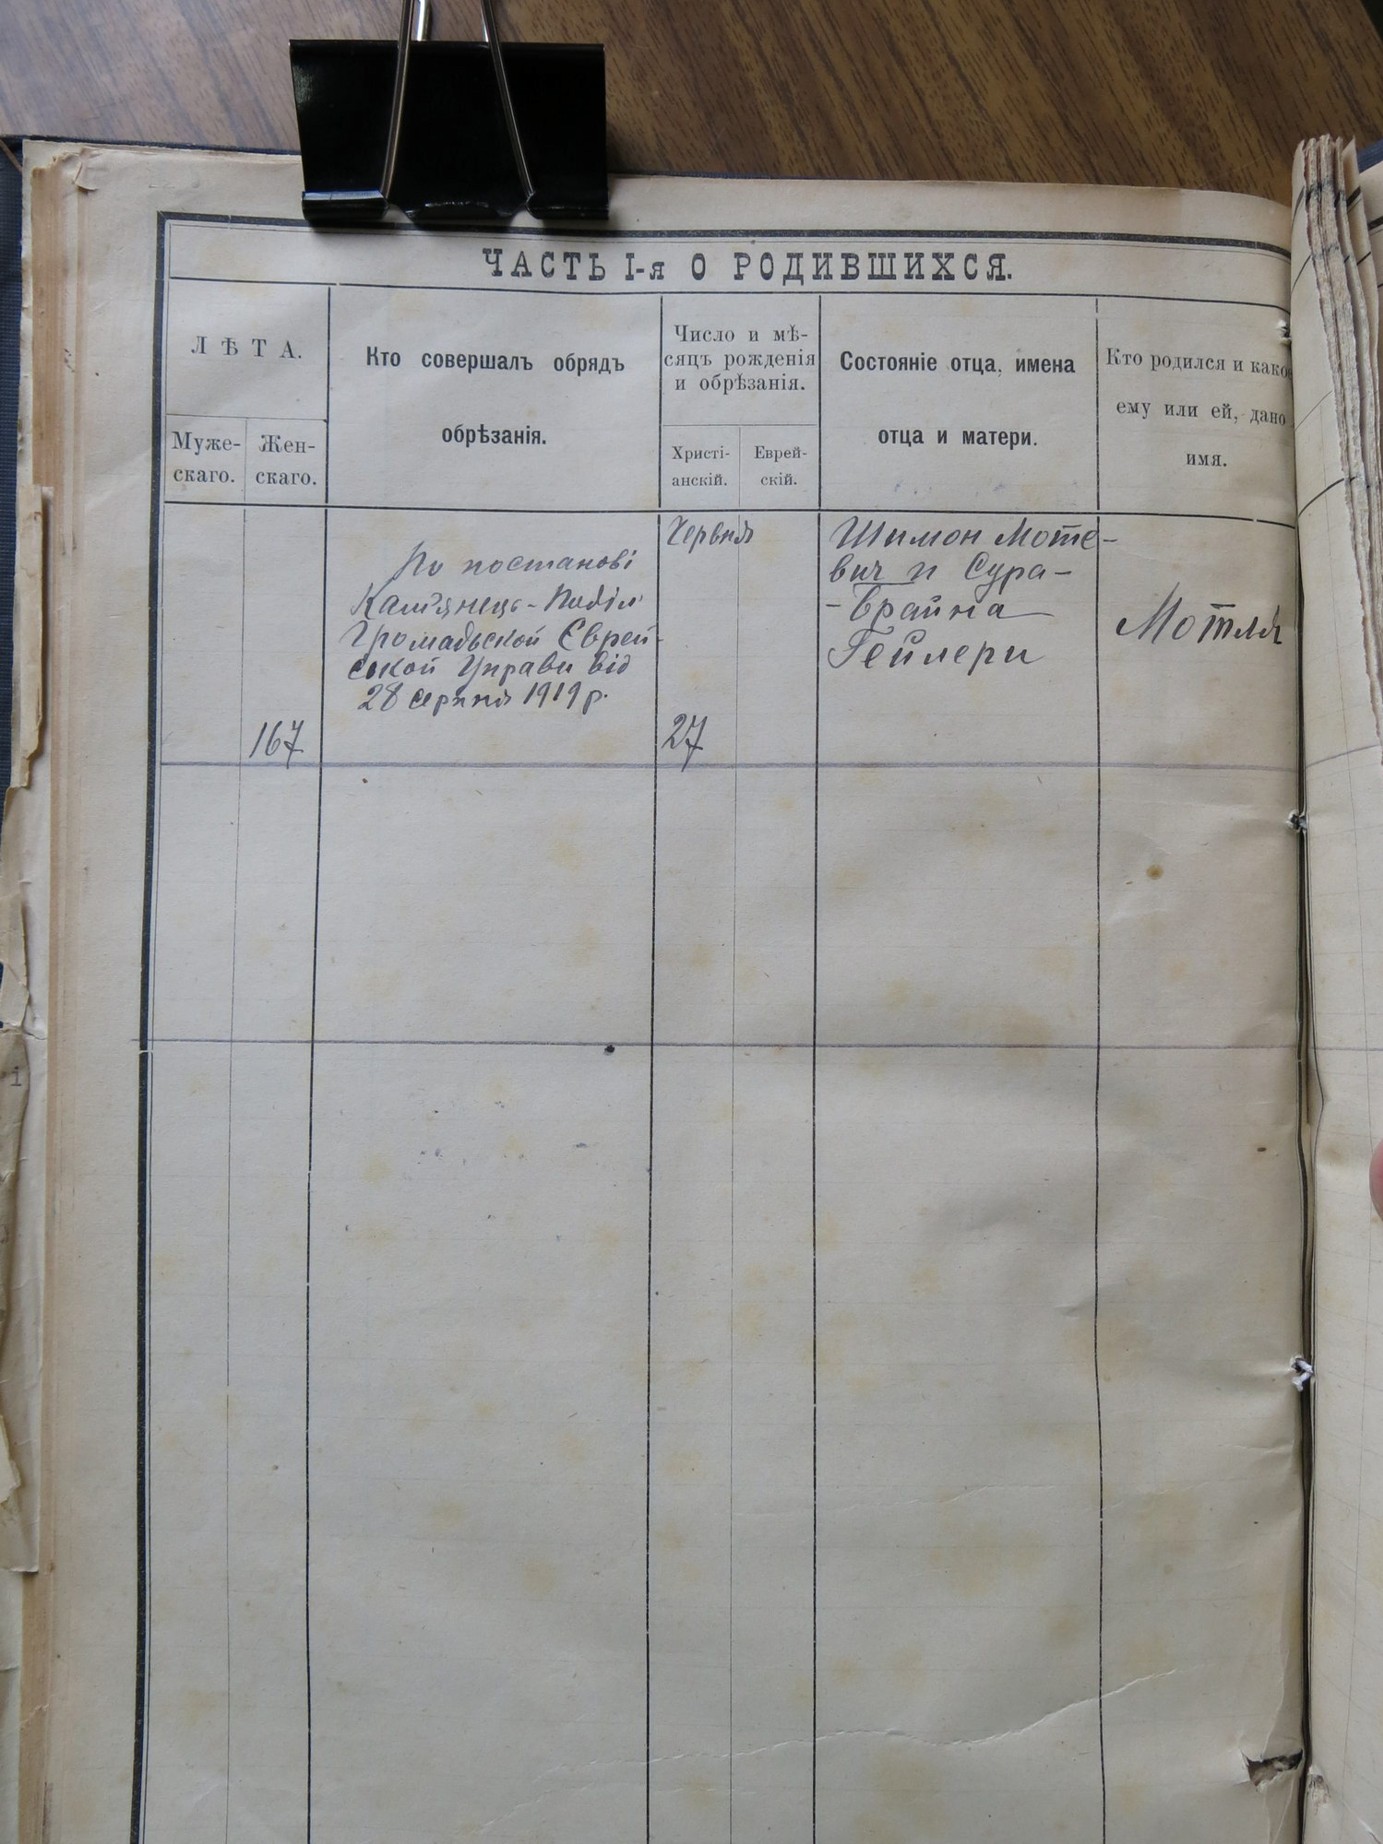 ЧАСТЬ I-я О РОДИВШИХСЯ.
ЛѢТА.
Муже-
скаго.
Жен-
скаго.
Кто совершалъ обрядъ
обрѣзанія.
Число и мѣ-
сяцъ рожденія
и обрѣзанія.
Христі-
анскій.
Еврей-
скій.
Состояніе отца, имена
отца и матери.
Кто родился и какое
ему или ей, дано
имя.
167
По постанові
Камʼянець-Поділ
Громадьской Єврей-
ської Управи від
28 серпня 1919 р.
Червня
27
Шимон Моте-
вич и Сура-
-Брайна
Гейлери
Мотля
i